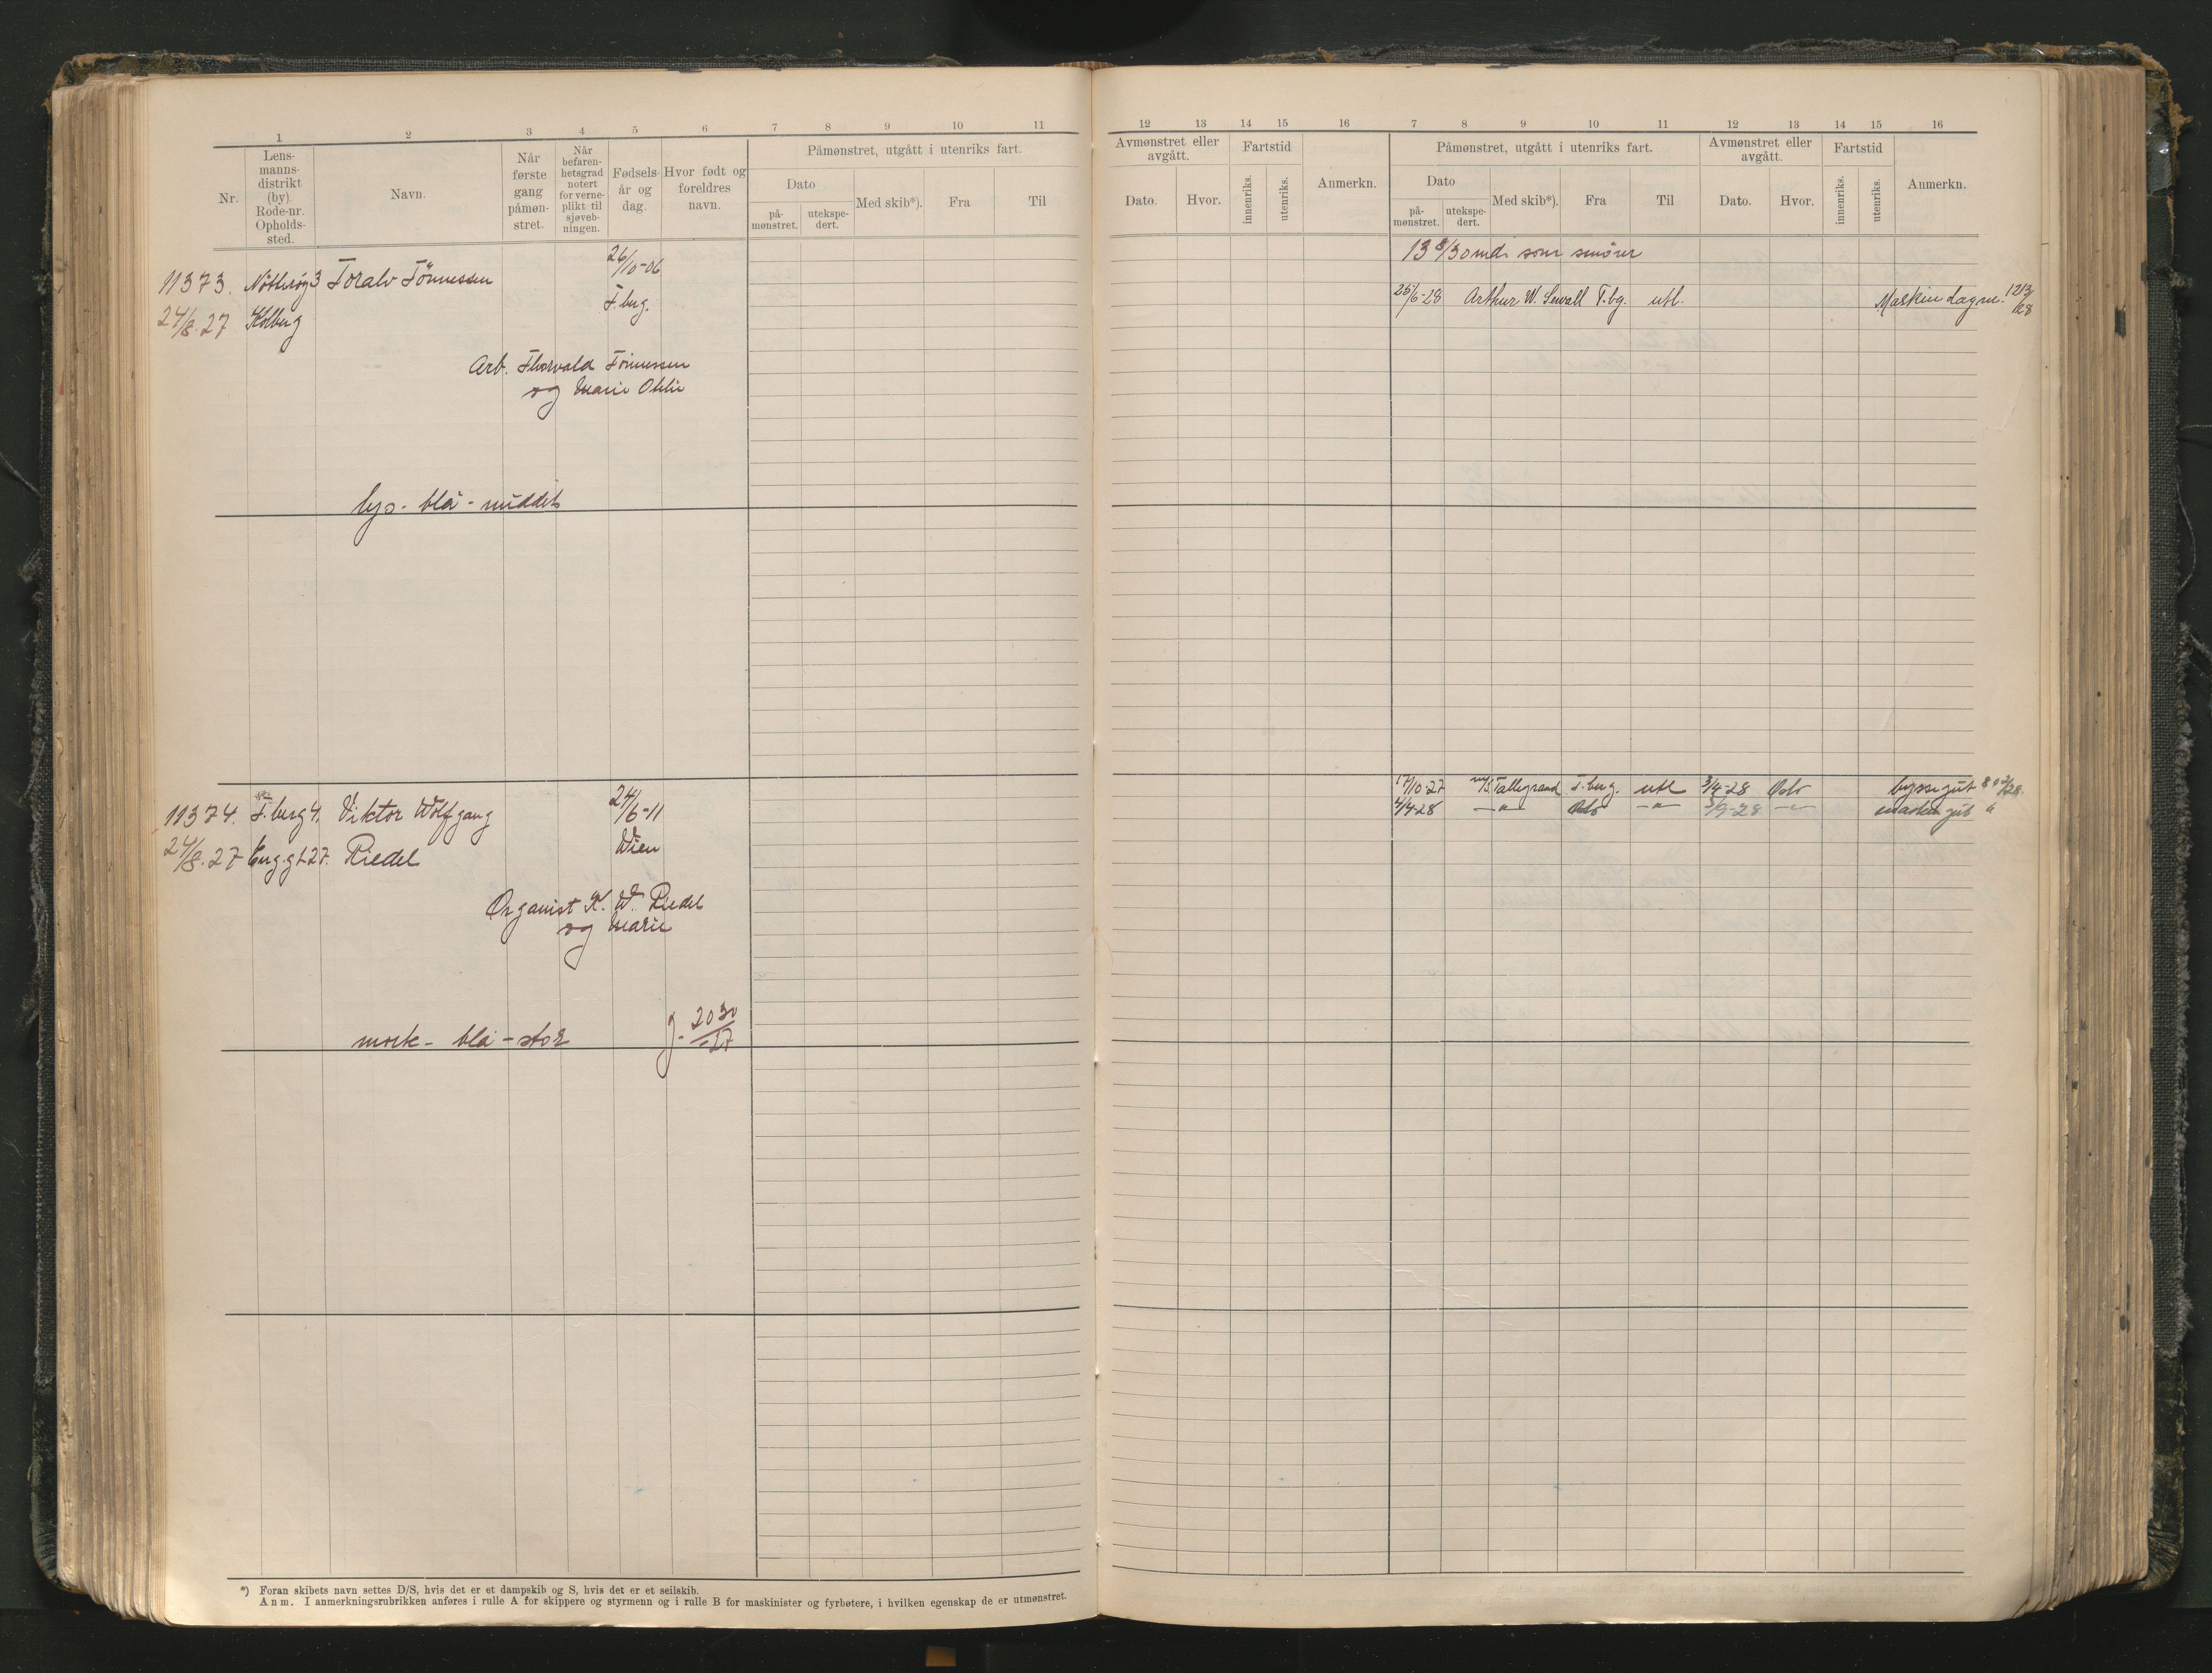 1 2 3 4 5 6 7 8 9 10 11
Nr. Lens-manns-distrikt (by). Rode-nr. Opholds-sted. Navn. Når første gang påmøn-stret. Når befaren-hetsgrad notert for verne-plikt til sjøveb-ningen. Fødsels-år og dag. Hvor født og foreldres navn.
Påmønstret, utgått i utenriks fart.
Dato Med skib*). Fra Til
på-mønstret. utekspe-dert.
26/10-06
11373. Nøtterøy 3 Toralv Tönnessen
T.berg.
24/8.27 Kolberg
Arb. Thorvald Tönnessen
og Marie Othlie
lys - blå - middels
24/6-11
11374. T.berg 4. Viktor Wolfgang
Wien
24/8.27 Riedel
Organist K. W. Riedel
og Marie
mørk - blå - stor
J. 2030/-27
*) Foran skibets navn settes D/S, hvis det er et dampskib og S, hvis det er et seilskib.
Anm. I anmerkningsrubrikken anføres i rulle A for skippere og styrmenn og i rulle B for maskinister og fyrbøtere, i hvilken egenskap de er utmønstret.
12 13 14 15 16 7 8 9 10 11 12 13 14 15 16
Avmønstret eller avgått. Fartstid Anmerkn. Påmønstret, utgått i utenriks fart. Avmønstret eller avgått. Fartstid Anmerkn.
Dato. Hvor. innenriks. utenriks. Dato Med skib*). Fra Til Dato. Hvor. innenriks. utenriks.
på-mønstret. utekspe-dert.
13 8/30 md. som smører
25/6-28 Arthur W. Sewall T.bg. utl. Maskindagm. 1213/28
17/10-27 m/s Talleyrand T.berg. utl 3/4-28 Oslo byssegut 802/28.
4/4-28 —"— Oslo —"— 3/9-28 —"— maskingut "